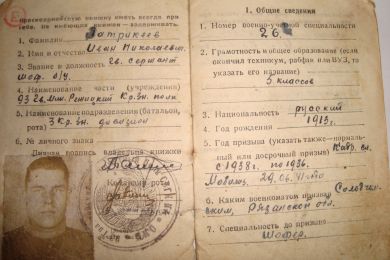 Красноармейскую книжку иметь всегда при
себе. Не имеющих книжек — задерживать.
1. Фамилия
2. Имя и отчество Иван Николаевич
3. Звание и должность гв. сержант
шоф.
4. Наименование части (учреждения)
93 гв. Мин. Речицкий Кр. Зн. полк
5. Наименование подразделения (батальон,
рота) 3 Кр. Зн. дивизион
6. № личного знака
Личная подпись владельца книжки
Командир
I. Общие сведения
1. Номер военно-учетной специальности
26.
2. Грамотность и общее образование (если
окончил техникум, рабфак или ВУЗ, то
указать его название)
5 классов
3. Национальность русский
4. Год рождения 1913 г.
5. Год призыва (указать также — нормаль-
ный или досрочный призыв)
с 1938 г. по 1936.
29.06.41
6. Каким военкоматом призван
ским, Рязанской обл.
7. Специальность до призыва
Шофер.